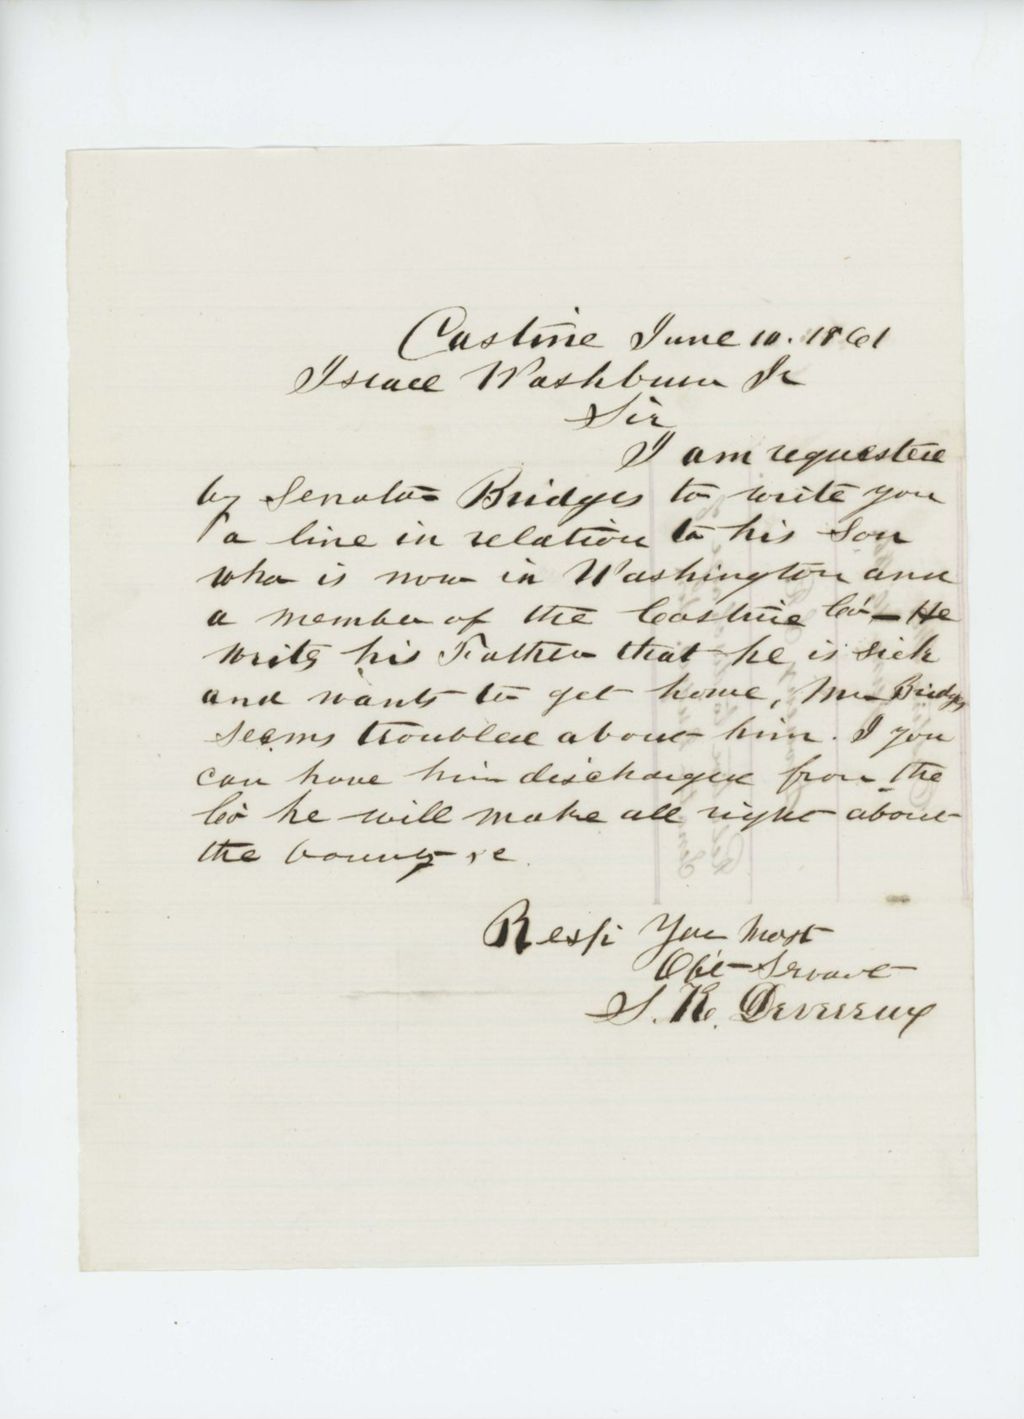 Castine June 10. 1861
Israel Washburn Jr
Sir
I am requested
by Senator Bridges to write you
a line in relation to his Son
who is now in Washington and
a member of the Castine Co - He
writes his Father that he is sick
and wants to get home, Mr Bridges
seems troubled about him. I you
can have him discharged from the
Co he will make all right about
the bounty &c.
Resp. Your Most
Obt Servant
S. K. Devereux